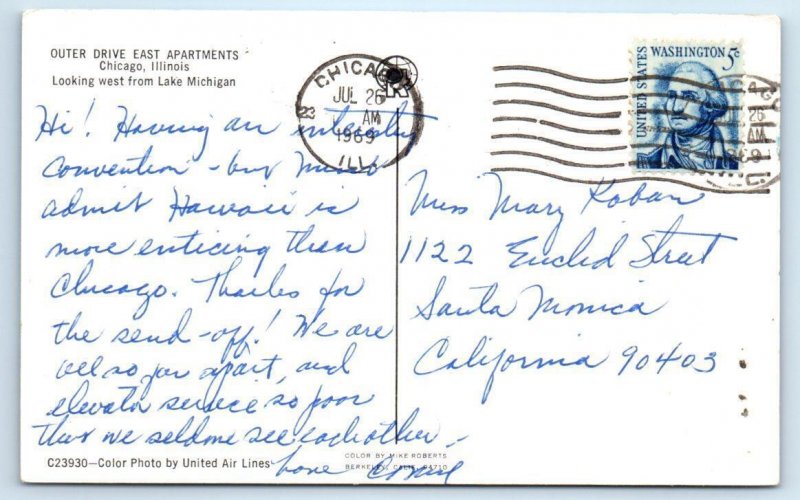 OUTER DRIVE EAST APARTMENTS
Chicago, Illinois
Looking west from Lake Michigan
CHICAGO
JUL 26
AM
1969
ILL
UNITED STATES
WASHINGTON 5c
Hi! Having an
convention - but must
admit Hawaii is
more enticing than
Chicago. Thanks for
the send-off! We are
all so far apart, and
elevator service so poor
that we seldome see each other -
Love
Miss Mary Koban
1122 Euclid Street
Santa Monica
California 90403
C23930—Color Photo by United Air Lines
COLOR BY MIKE ROBERTS
BERKELEY, CALIF. 94710